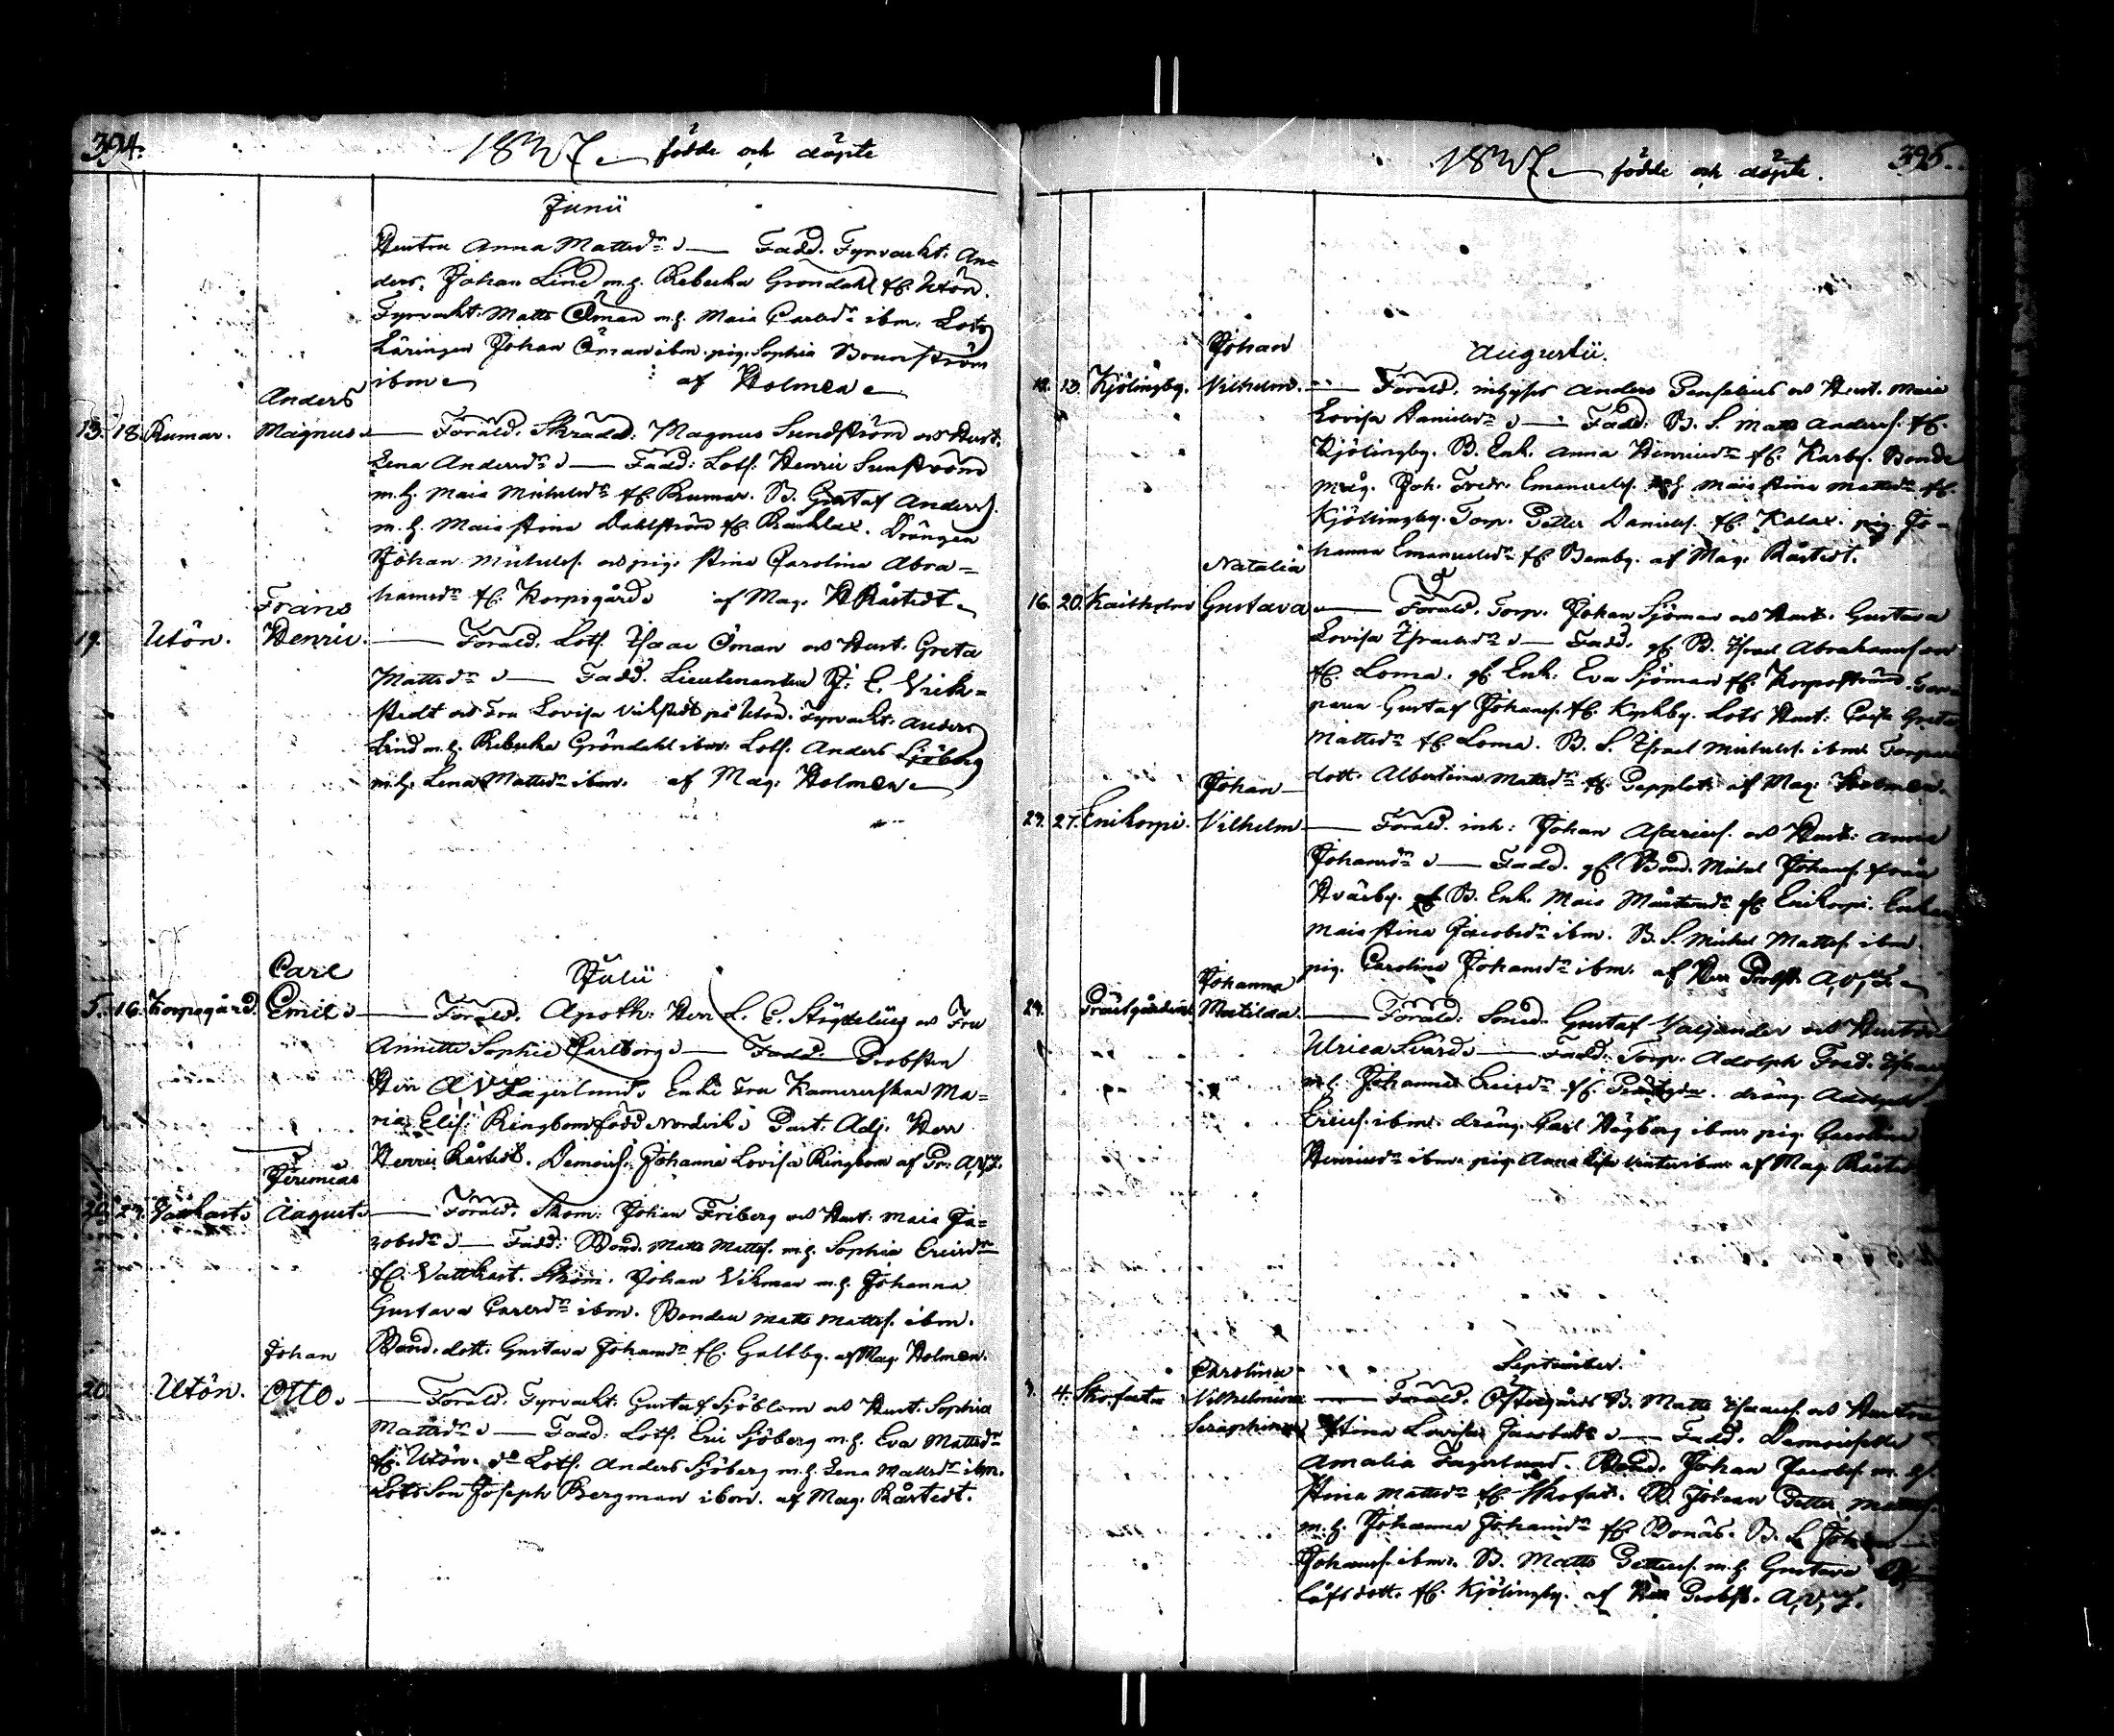 394.
1837 födde och döpte
Junii
Hustru Anna Mattsdr Fadd. Fyrvakt. An=
ders Johan Lind m.h. Rebecka Gröndahl fr. Utön.
Fyrvakt. Matts Öman m.h. Maia Carlsdr ibm. Lots
Läringen Johan Öman ibm. pig. Sophia
ibm af Holmen
Anders
13. 18. Rumar. Magnus. Foräld. Skrädd: Magnus Sundström och Hust.
Lena Andersdr Fadd: Lots. Henric Sunström
m.h. Maia Michelsdr fr. Rumar. B. Gustaf Anderss.
m.h. Maia Stina Dahlström fr. Drängen
Johan Michelss. och pig. Stina Carolina Abra=
hamsdr fr. Korpogård af Mag. H Råstedt
Frans
19. Utön. Henric. Foräld. Lots. Isaac Öman och Hust. Greta
Mattsdr Fadd. Lieutenanten J. E. Vick=
stedt och Fru Lovisa Vickstedt på Utön. Fyrvakt. Anders
Lind m.h. Rebecka Gröndahl ibm. Lots. Anders Sjöberg
m.h. Lena Mattsdr ibm. af Mag. Holmen
Julii
Carl
5. 16. Korpogård. Emil Foräld. Apoth: Herr L. E. och Fru
Annette Sophie Carlborg Fadd. Probsten
Herr A V Fagerlund. Enke Fru Kamrerskan Ma=
ria Elis: Ringbom född Nordvik Past. Adj. Herr
Henric Råstedt. Demois. Johanna Lovisa Ringbom af Pr. A.V.F.
Jeremias
26. 29. August. Foräld. Skom: Johan Friberg och Hust: Maia Ja=
cobsdr Fadd: Bond. Matts Mattss. m.h. Sophia Ericsdr
fr. Vattkast. Skom. Johan Vikman m.h. Johanna
Gustava Carlsdr ibm. Bonden Matts Mattss. ibm.
Bond. dott. Gustava Johansdr fr. Galtby. af Mag. Holmen.
Johan
20. Utön. Otto. Foräld. Fyrvakt. Gustaf Sjöblom och Hust. Sophia
Mattsdr Fadd: Lots. Eric Sjöberg m.h. Eva Mattsdr
fr. Utön. do Lots. Anders Sjöberg m.h. Lena Mattsdr ibm.
Lots Son Joseph Bergman ibm. af Mag. Råstedt.
395.
1837 födde och döpte.
Augustii.
Johan
12. 13. Kjölingby. Vilhelm. Foräld. inhyses Anders och Hust. Maia
Lovisa Danielsdr Fadd: B. S. Matts Anderss. fr.
Kjölingby. B. Enk. Anna Henricsdr fr. Karby. Bonde
måg. Joh. Fredr. Emanuelss. m.h. Maia Stina Mattsdr fr.
Kjölingby. Torp. Petter Danielss. fr. Kalax. pig. Jo=
hanna Emanuelsdr fr. Bemby. af Mag. Råstedt.
Natalia
16. 20. Kaitholm Gustava Foräld. Torp. Johan Sjöman och Hust. Gustava
Lovisa Israelsdr Fadd. gf. B. Israel Abrahamsson
fr. Loma. gf. Enk. Eva Sjöman fr. Korpoström. Torp
paren Gustaf Johanss. fr. Kyrkby. Lots Hust: Caisa Greta
Mattsdr fr. Loma. B. S. Israel Michelss. ibm. Torpare
dott. Albertina Mattsdr fr. af Mag. Holmen.
Johan
24. 27. Enikorpi. Vilhelm Foräld. inh: Johan Asariess. och Hust: Anna
Johansdr Fadd. gf. Bond. Michel Johanss. från
B. Enk. Maia Mårtensdr fr. Enikorpi. Enkan
Maia Stina Jacobsdr ibm. B. S. Michel Mattss. ibm.
pig. Carolina Johansdr ibm. af Herr Probst. A.V.F.
Johanna
24. Matilda. Foräld: Smed. Gustaf och Hustru
Ulrica Svärd Fadd: Torp. Adolph Fred.
m.h. Johanna Ericsdr fr. dräng.
Ericss. ibm. dräng. Carl Högberg ibm. pig. Carolina
Henricsdr ibm. pig. Anna Lisa ibm. af Mag. Råstedt
September.
Carolina
3. 4. Skofart. Vilhelmina Foräld. Östergårds B. Matts Isacss. och Hustru
Seraphina Stina Lovisa Jacobsdr Fadd. Demoiselle
Amalia Fagerlund. Bond. Johan Jacobss. m.h.
Stina Mattsdr fr. Skofart. B. Johan Petter Mattss.
m.h. Johanna Johansdr fr. Bonäs. B. S. Johan
Johanss. ibm. B. Matts Petterss. m.h. Gustava
låfsdott. fr. Kjölingby. af Herr Probst. A.V.F.